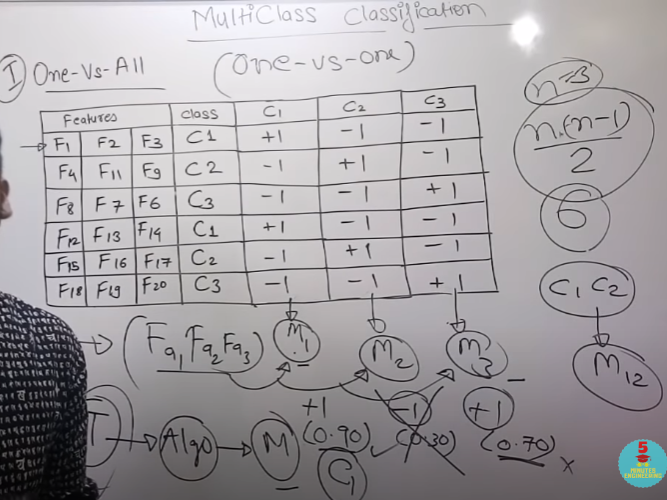 MultiClass Classification
(One-vs-one)
I One-Vs-All
Features class C1 C2 C3
F1 F2 F3 C1 +1 -1 -1
F4 F11 F9 C2 -1 +1 -1
F8 F7 F6 C3 -1 -1 +1
F12 F13 F14 C1 +1 -1 -1
F15 F16 F17 C2 -1 +1 -1
F18 F19 F20 C3 -1 -1 +1
n=3
n.(n-1)
2
6
C1 C2
M12
(Fa1 Fa2 Fa3) M1 M2 M3
+1 -1 +1
T Algo M (0.90) (0.30) (0.70) x
C1
5
MINUTES
ENGINEERING